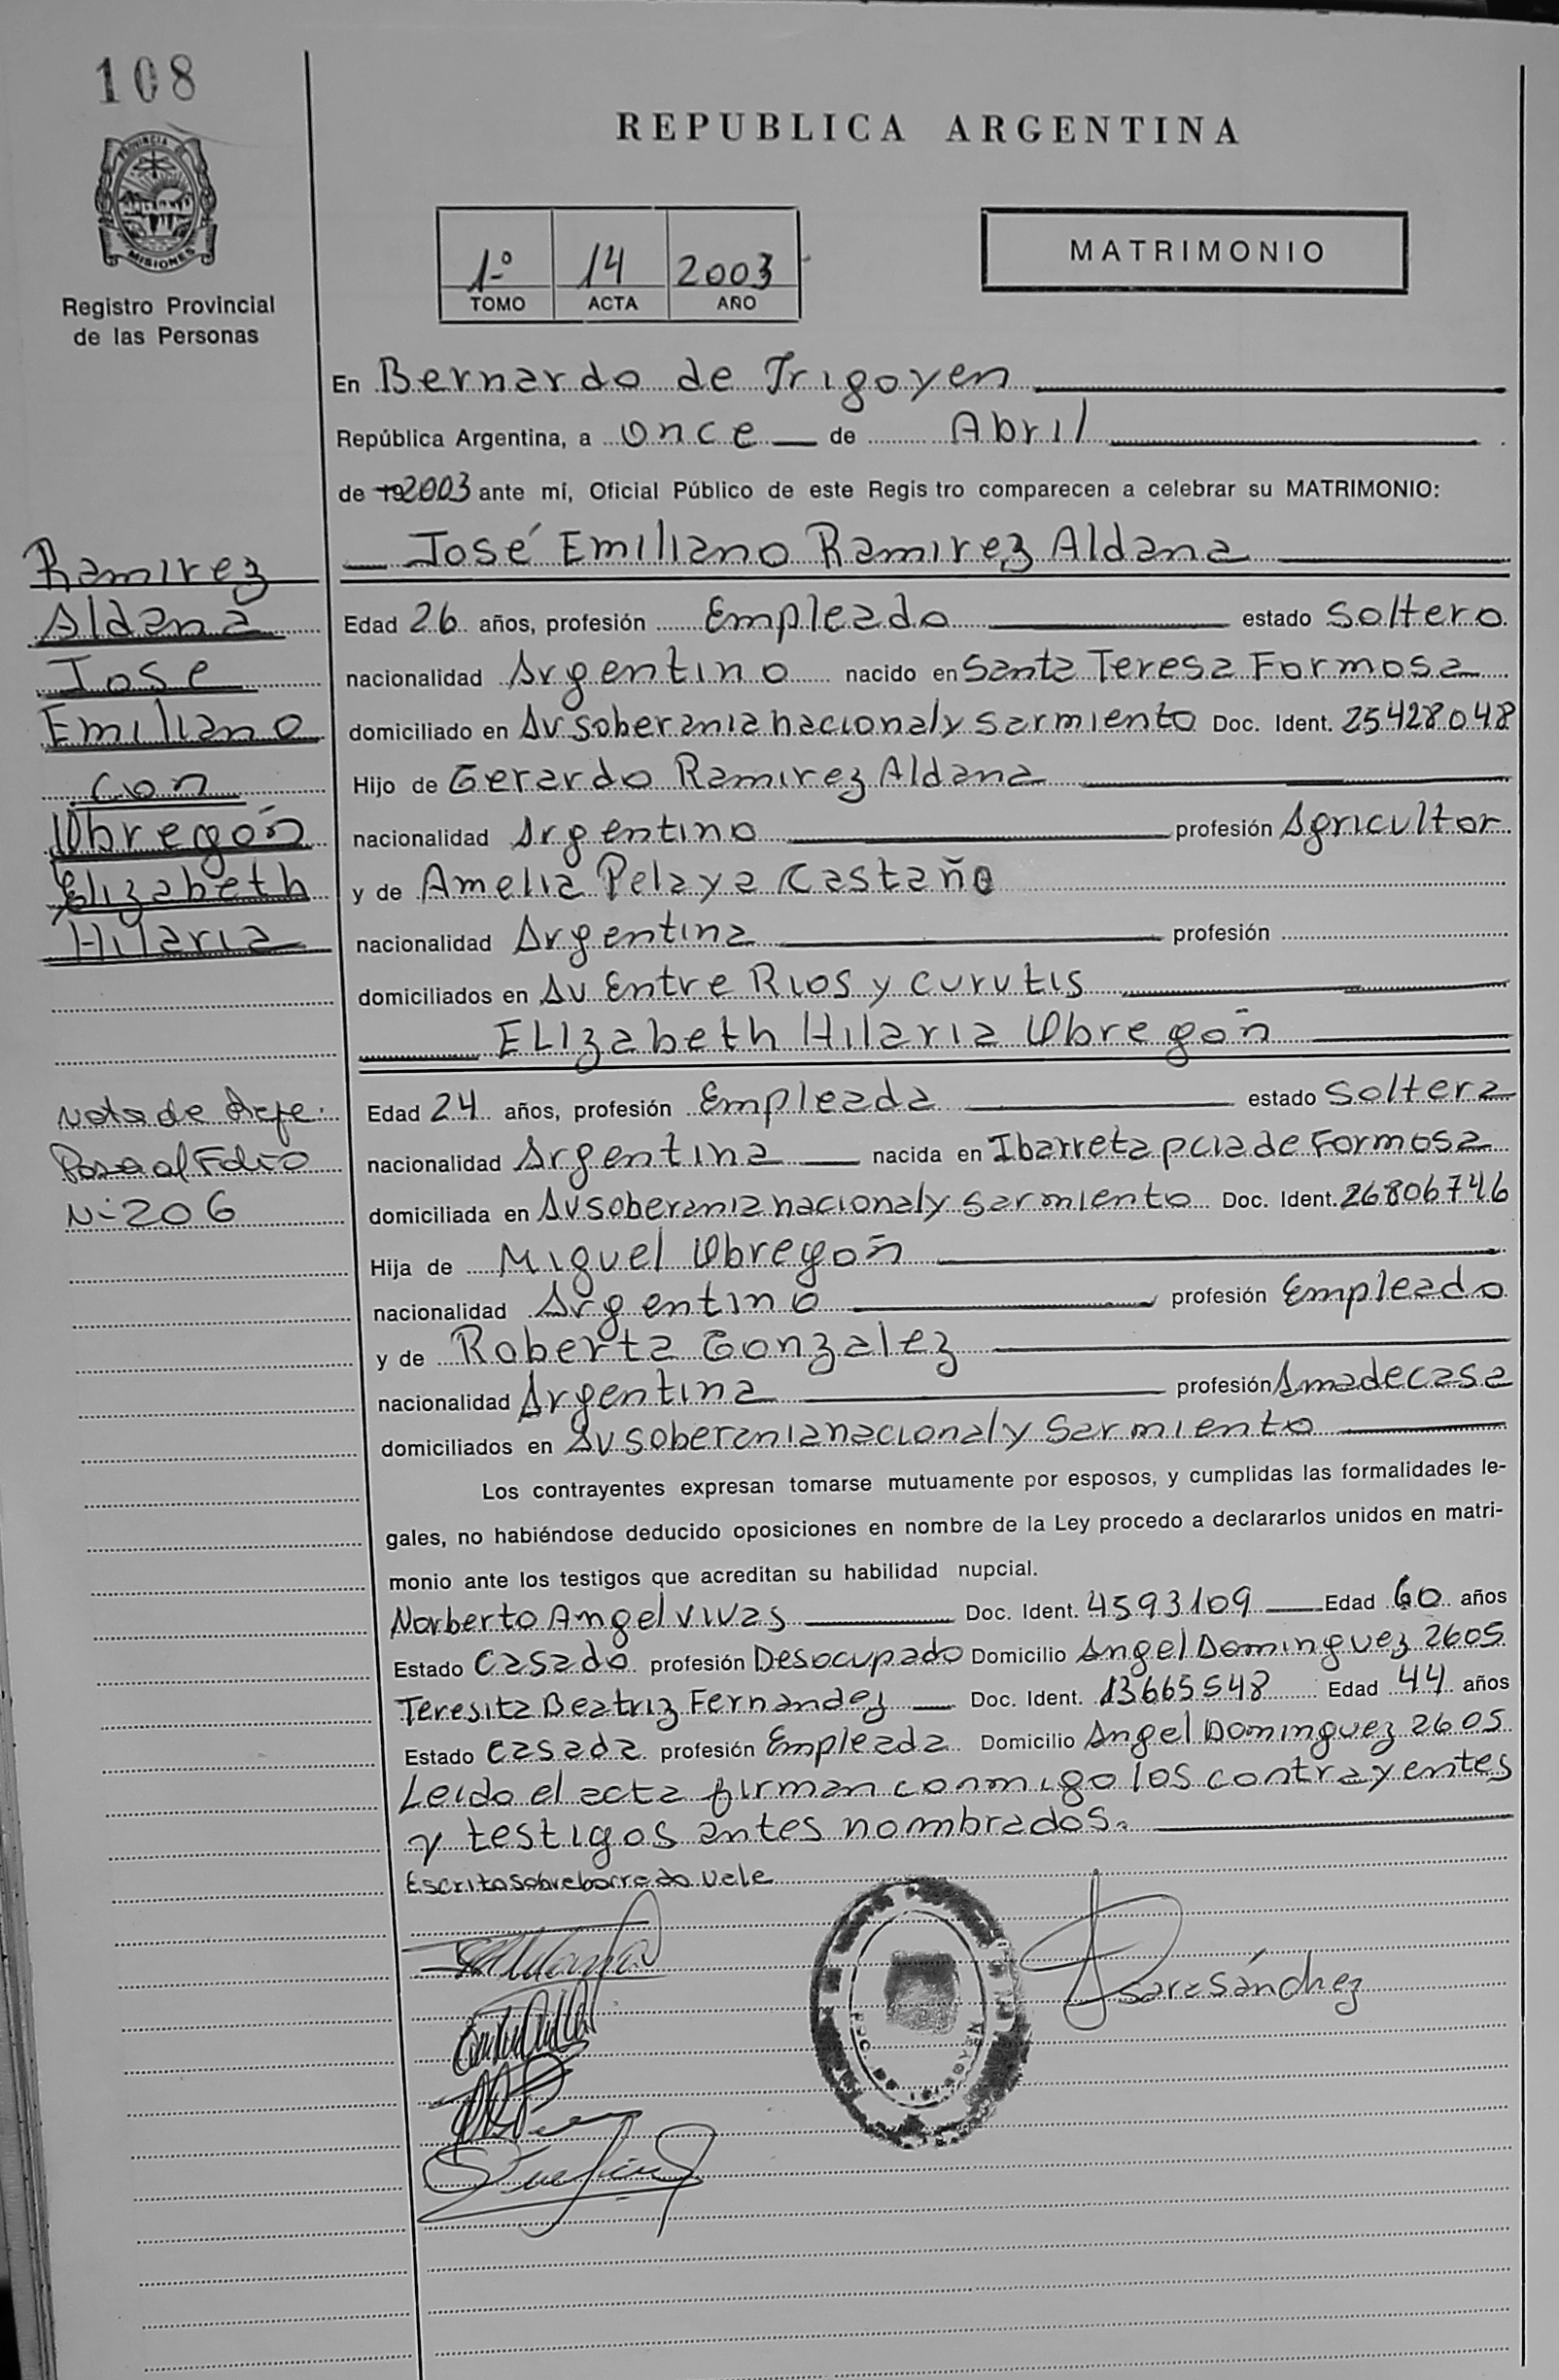 108
REPUBLICA ARGENTINA
PROVINCIA DE
MISIONES
Registro Provincial
de las Personas
1º 14 2003
TOMO ACTA AÑO
MATRIMONIO
En Bernardo de Irigoyen
República Argentina, a once de Abril
de 192003 ante mí, Oficial Público de este Regis tro comparecen a celebrar su MATRIMONIO:
José Emiliano Ramirez Aldana
Edad 26 años, profesión Empleado estado Soltero
nacionalidad Argentino nacido en Santa Teresa Formosa
domiciliado en Av soberania nacional y Sarmiento Doc. Ident. 25.428.048
Hijo de Gerardo Ramirez Aldana
nacionalidad Argentino profesión Agricultor
y de Amelia Pelaya Castaño
nacionalidad Argentina profesión
domiciliados en Av Entre Rios y Curutis
Elizabeth Hilaria Obregoñ
Edad 24 años, profesión Empleada estado Soltera
nacionalidad Argentina nacida en Ibarreta pcia de Formosa
domiciliada en Av soberania nacional y Sarmiento Doc. Ident. 26806746
Hija de Miguel Obregoñ
nacionalidad Argentino profesión Empleado
y de Roberta Gonzalez
nacionalidad Argentina profesión Ama de casa
domiciliados en Av soberania nacional y Sarmiento
Los contrayentes expresan tomarse mutuamente por esposos, y cumplidas las formalidades le-
gales, no habiéndose deducido oposiciones en nombre de la Ley procedo a declararlos unidos en matri-
monio ante los testigos que acreditan su habilidad nupcial.
Norberto Angel Vivas Doc. Ident. 4593109 Edad 60 años
Estado Casado profesión Desocupado Domicilio Angel Dominguez 2605
Teresita Beatriz Fernandez Doc. Ident. 13665548 Edad 44 años
Estado Casada profesión Empleada Domicilio Angel Dominguez 2605
Leido el acta firman conmigo los contrayentes
y testigos antes nombrados.
Escrito sobre borrado Vale
Sara Sánchez
Ramirez
Aldana
Jose
Emiliano
Con
Obregoñ
Elizabeth
Hilaria
Nota de
Pasa al Folio
Nº 206